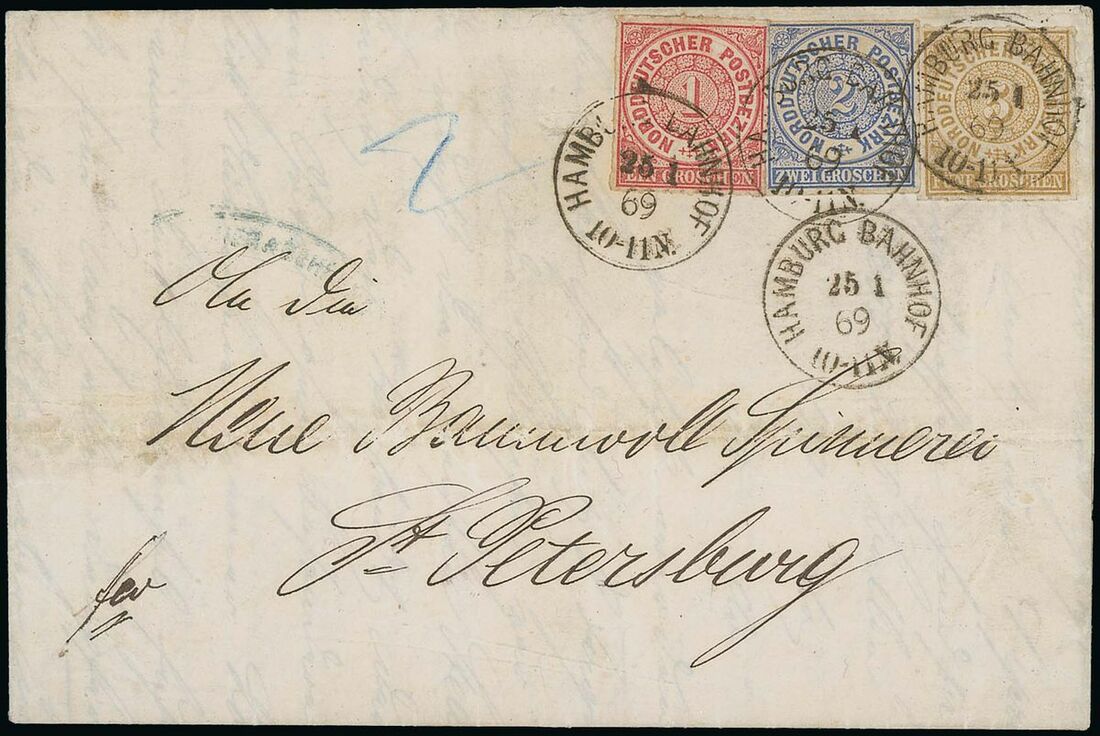 NORDDEUTSCHER POSTBEZIRK
1
EIN GROSCHEN
NORDDEUTSCHER POSTBEZIRK
2
ZWEI GROSCHEN
NORDDEUTSCHER
3
GROSCHEN
HAMBURG BAHNHOF
25 1
69
10-11N.
HAMBURG BAHNHOF
25 1
69
10-11N.
HAMBURG BAHNHOF
25 1
69
10-11N.
HAMBURG BAHNHOF
25 1
69
10-11N.
2
An die
Neue Baumwoll Spinnerei
St Petersburg